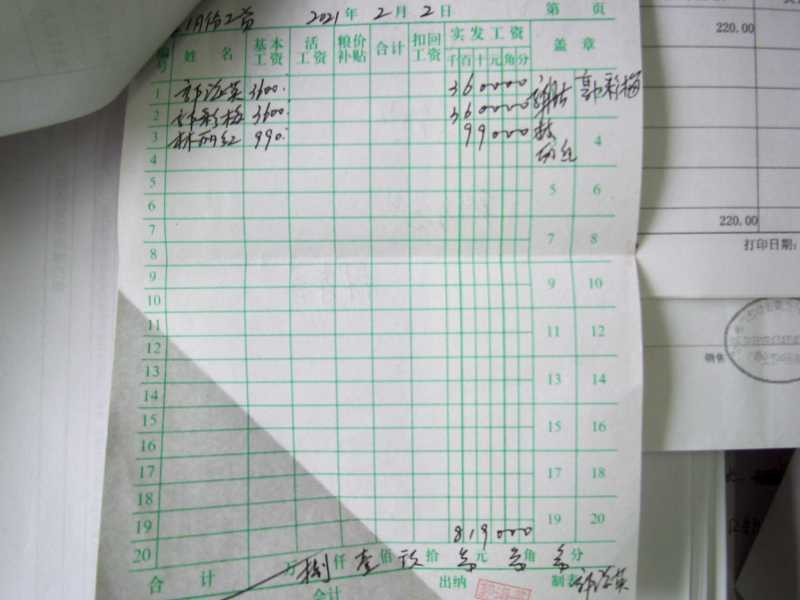 1月份工资 2021年2月2日 第 页
编号 姓名 基本工资 活工资 粮价补贴 合计 扣回工资 实发工资 千百十元角分 盖章
1 3600. 360000 郭彩梅
2 郭彩梅 3600. 360000
3 林丽红 990. 99000 林
4 丽红 4
5 5 6
6
7 7 8
8
9 9 10
10
11 11 12
12
13 13 14
14
15 15 16
16
17 17 18
18
19 819000 19 20
20
合计 万捌仟壹佰玖拾 元 角 分
会计 出纳 制表
220.00
220.00
打印日期:
销售